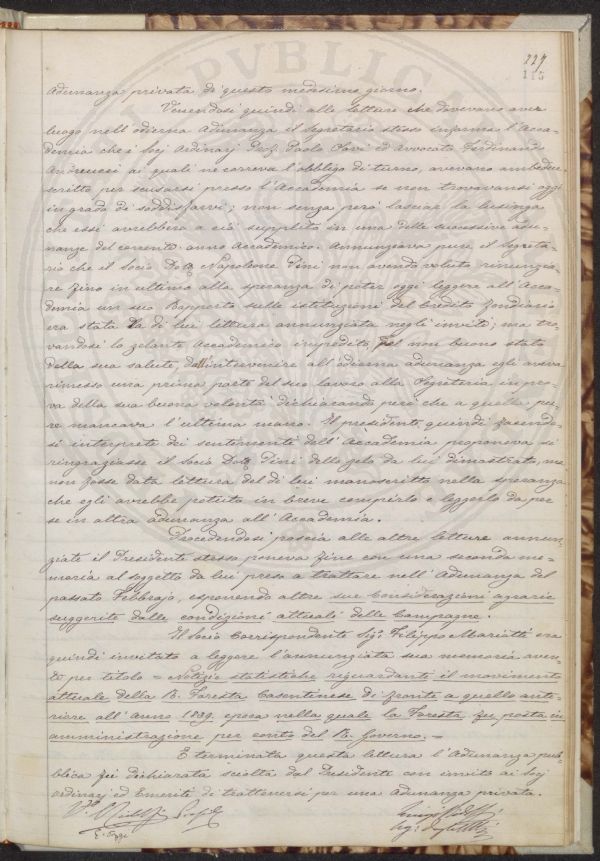 227
115
Adunanza privata di questo medesimo giorno.
Venendosi quindi alle letture che dovevano aver
luogo nell'odierna Adunanza il Segretario stesso informa l'Acca=
demia che i Socj Ordinarj Prof. Paolo Savi ed Avvocato Ferdinando
Andreucci ai quali ne correva l'obbligo di turno, avevano ambedue
scritto per scusarsi presso l'Accademia se non trovavansi oggi
in grado di soddisfarvi; non senza però lasciar la lusinga
che essi avrebbero a ciò supplito in una delle successive adu=
nanze del corrente anno Accademico. Annunziava pure il Segreta=
rio che il Socio Dott. Napoleone Pini non avendo voluto rinunzia=
re fino in ultimo alla speranza di poter oggi leggere all'Acca=
demia un suo Rapporto sulle istituzioni del Credito fondiario
era stata la di lui lettura annunziata negli inviti; ma tro=
vandosi lo zelante Accademico impedito, pel non buono stato
della sua salute, dall'intervenire all'odierna adunanza egli aveva
rimesso una prima parte del suo lavoro alla Segreteria in pro=
va della sua buona volontà dichiarando però che a quella pu=
re mancava l'ultima mano. Il presidente quindi facendo=
si interprete dei sentimenti dell'Accademia proponeva si
ringraziasse il Socio Dott. Pini dello zelo da lui dimostrato, ma
non fosse data lettura del di lui manoscritto nella speranza
che egli avrebbe potuto in breve compirlo e leggerlo da per
se in altra adunanza all'Accademia.
Procedendosi poscia alle altre letture annun=
ziate il Presidente stesso poneva fine con una seconda me=
moria al soggetto da lui preso a trattare nell'Adunanza del
passato Febbrajo, esponendo altre sue Considerazioni agrarie
suggerite dalle condizioni attuali delle Campagne.
Il Socio Corrispondente Sig. Filippo Mariotti era
quindi invitato a leggere l'annunziata sua memoria aven=
te per titolo = Notizie statistiche riguardanti il movimento
attuale della R. Foresta Casentinese di fronte a quello ante=
riore all'anno 1839. epoca nella quale la Foresta fu posta in
amministrazione per conto del R. Governo. =
E terminata questa lettura l'Adunanza pub=
blica fù dichiarata sciolta dal Presidente con invito ai Socj
ordinarj ed Emeriti di trattenersi per una adunanza privata.